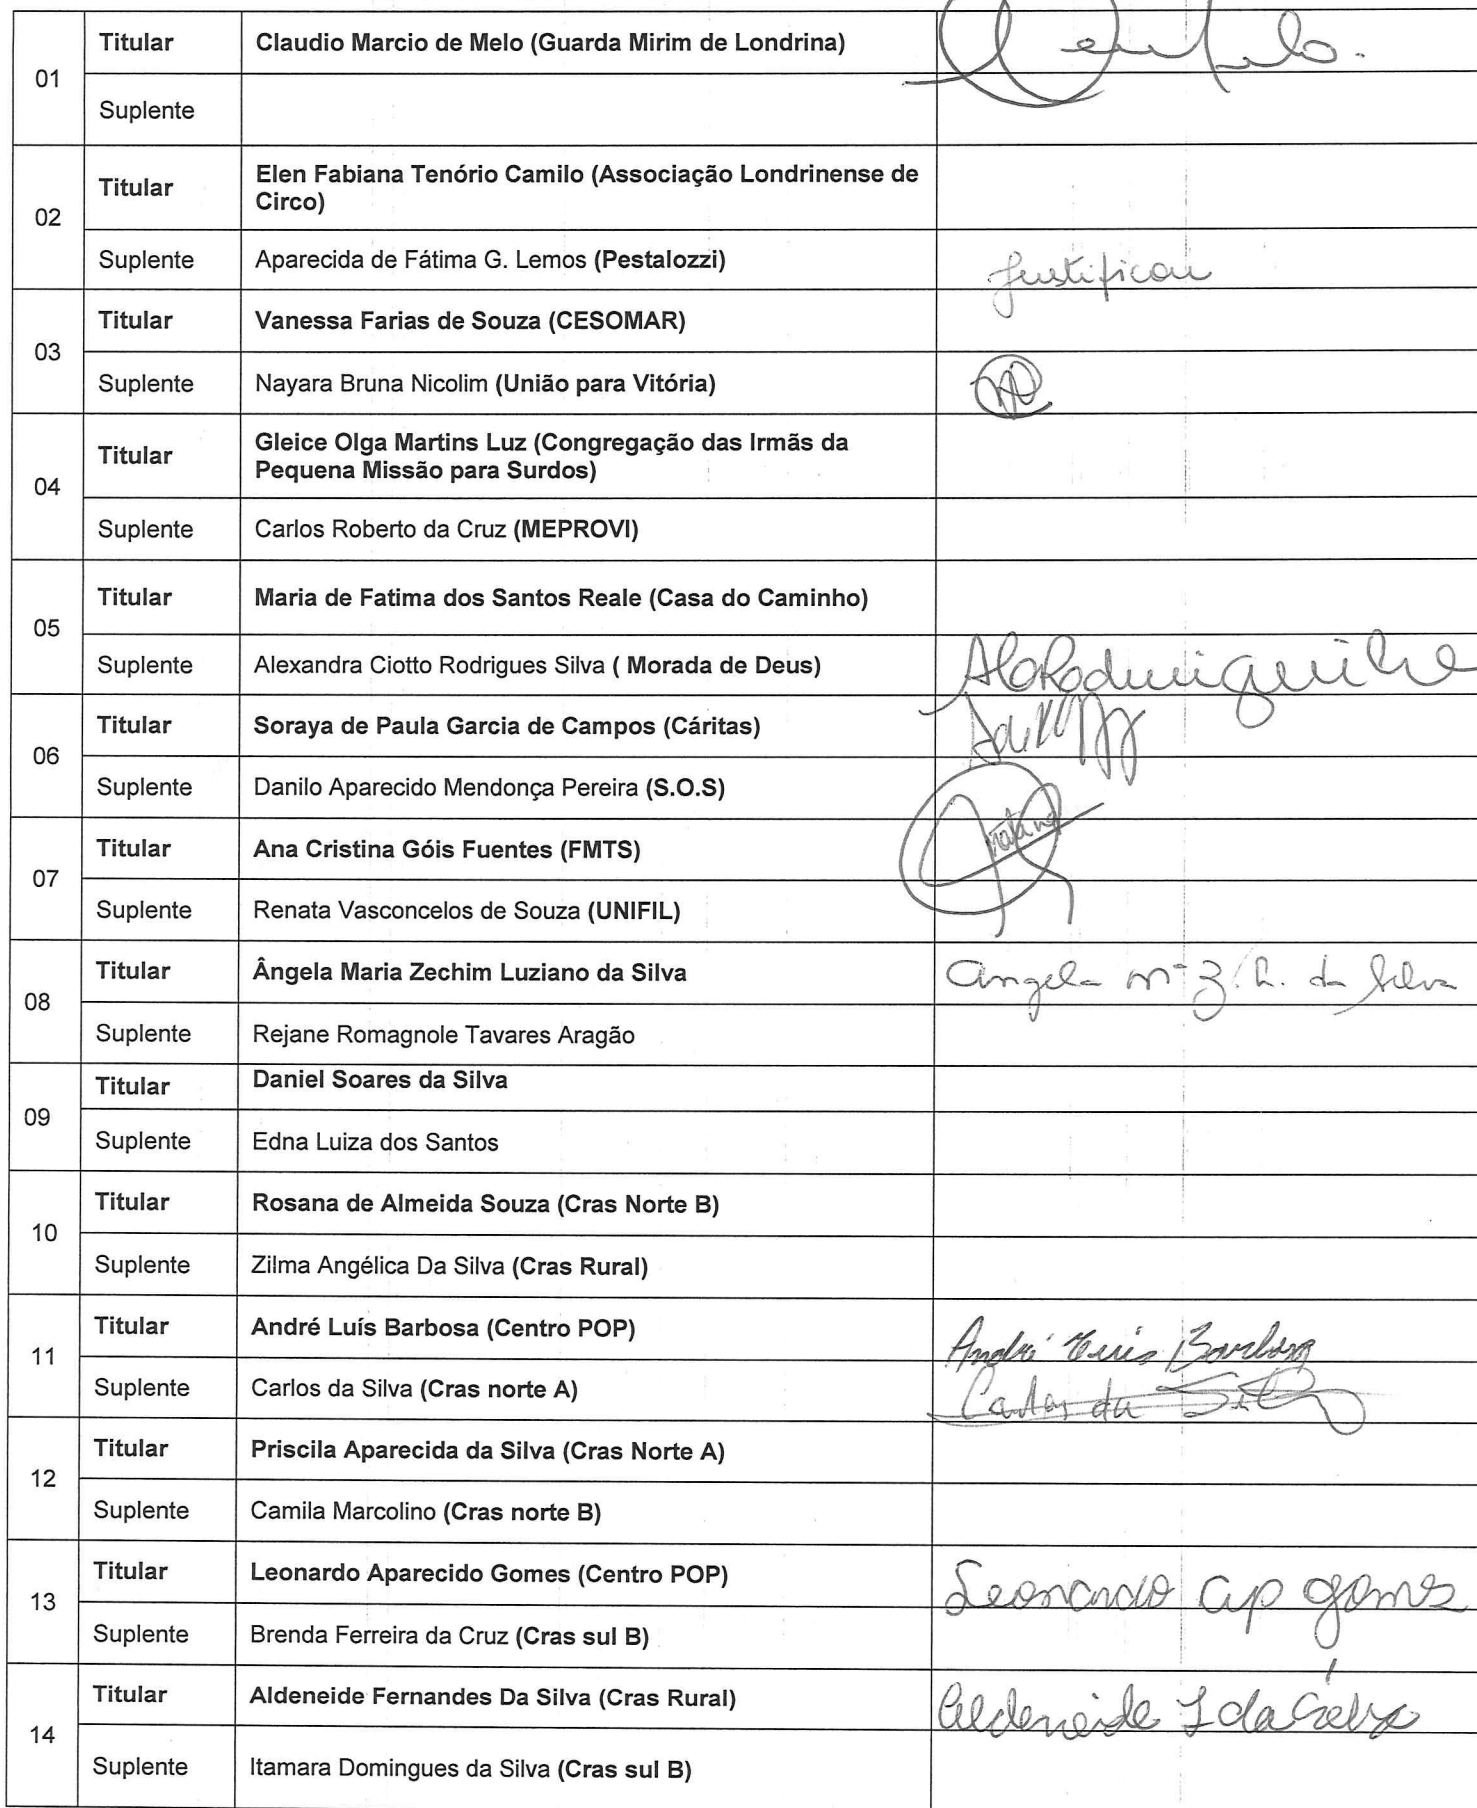 01
Titular Claudio Marcio de Melo (Guarda Mirim de Londrina)
Suplente
02
Titular Elen Fabiana Tenório Camilo (Associação Londrinense de
Circo)
Suplente Aparecida de Fátima G. Lemos (Pestalozzi) Justificou
03
Titular Vanessa Farias de Souza (CESOMAR)
Suplente Nayara Bruna Nicolim (União para Vitória)
04
Titular Gleice Olga Martins Luz (Congregação das Irmãs da
Pequena Missão para Surdos)
Suplente Carlos Roberto da Cruz (MEPROVI)
05
Titular Maria de Fatima dos Santos Reale (Casa do Caminho)
Suplente Alexandra Ciotto Rodrigues Silva ( Morada de Deus)
06
Titular Soraya de Paula Garcia de Campos (Cáritas)
Suplente Danilo Aparecido Mendonça Pereira (S.O.S)
07
Titular Ana Cristina Góis Fuentes (FMTS)
Suplente Renata Vasconcelos de Souza (UNIFIL)
08
Titular Ângela Maria Zechim Luziano da Silva Angela Mª Z. L. da Silva
Suplente Rejane Romagnole Tavares Aragão
09
Titular Daniel Soares da Silva
Suplente Edna Luiza dos Santos
10
Titular Rosana de Almeida Souza (Cras Norte B)
Suplente Zilma Angélica Da Silva (Cras Rural)
11
Titular André Luís Barbosa (Centro POP) André Luis Barbosa
Suplente Carlos da Silva (Cras norte A) Carlos da Silva
12
Titular Priscila Aparecida da Silva (Cras Norte A)
Suplente Camila Marcolino (Cras norte B)
13
Titular Leonardo Aparecido Gomes (Centro POP) Leonardo ap gomes
Suplente Brenda Ferreira da Cruz (Cras sul B)
14
Titular Aldeneide Fernandes Da Silva (Cras Rural) Aldeneide F da Silva
Suplente Itamara Domingues da Silva (Cras sul B)